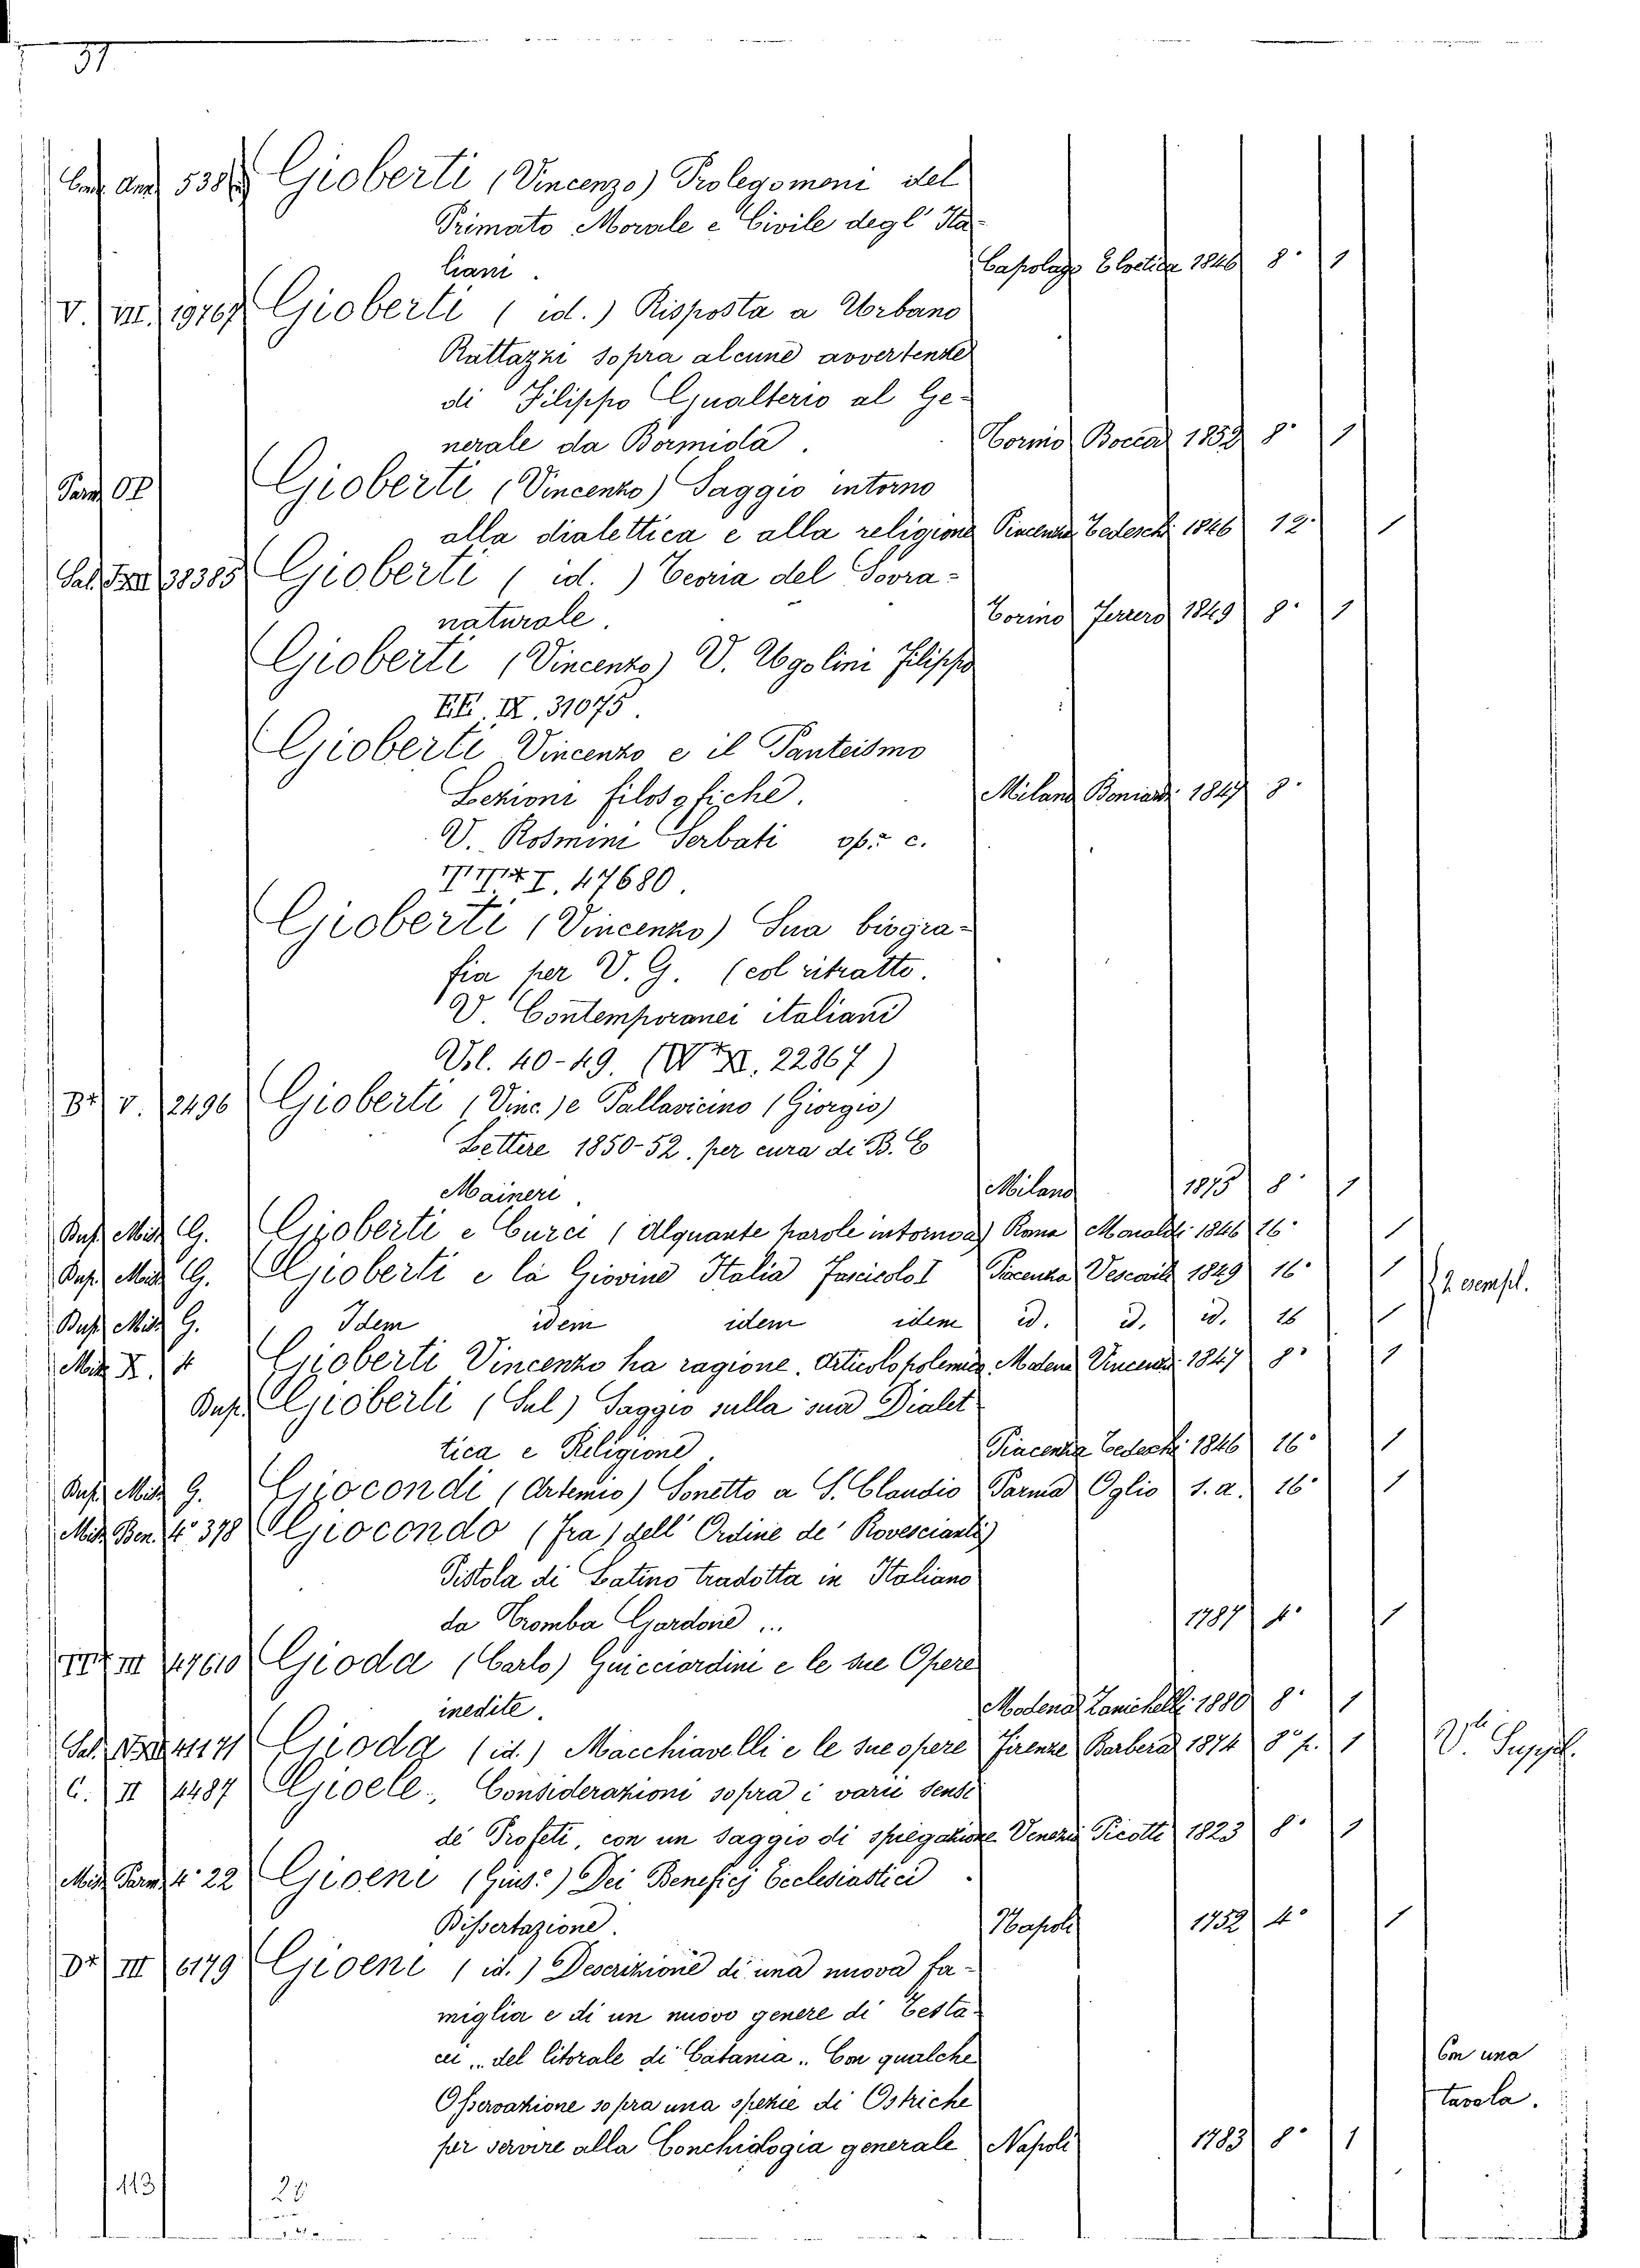 37
5388 Gioberti (Vincenzo) Prolegomeni del
Primato Morale e Civile degl' Ita-
liani. Capolago Elvetica 1846 8° 1
V. VII. 19767 Gioberti (id.) Risposta a Urbano
Rattazzi sopra alcune avvertenze
di Filippo Gualterio al Ge-
nerale da Bormida. Torino Bocca 1852 8° 1
Gioberti (Vincenzo) Saggio intorno
alla dialettica e alla religione Piacenza Tedeschi 1846 12° 1
Sal. 38385 Gioberti (id.) Teoria del Sovra-
naturale. Torino Ferrero 1849 8° 1
Gioberti (Vincenzo) V. Ugolini Filippo
EE. IX. 31075.
Gioberti Vincenzo e il Panteismo
Lezioni filosofiche. Milano Boniardi 1847 8°
V. Rosmini Serbati op. c.
I. 47680.
Gioberti (Vincenzo) Sua biogra-
fia per V. G. (col ritratto.
V. Contemporanei italiani
Vol. 40-49. 22867)
V. 2496 Gioberti (Vinc.) e Pallavicino (Giorgio)
Lettere 1850-52. per cura di B. E
Maineri. Milano 1875 8° 1
Misc. G. Gioberti e Curci (Alquante parole intorno a) Roma Monaldi 1846 16° 1
Misc. G. Gioberti e la Giovine Italia Fascicolo I Piacenza Vescovile 1849 16° 1 2 esempl.
Misc. G. Idem idem idem idem id. id. id. 16 1
Misc. X. 4 Gioberti Vincenzo ha ragione. Articolo polemico. Modena Vincenzi 1847 8° 1
Gioberti (Sul) Saggio sulla sua Dialet
tica e Religione. Piacenza Tedeschi 1846 16° 1
Misc. G. Giocondi (Artemio) Sonetto a S. Claudio Parma Oglio s. a. 16° 1
Misc. Ben. 4° 378 Giocondo (Fra) dell' Ordine de' Rovescianti)
Pistola di Latino tradotta in Italiano
da Tromba Gardone ... 1787 4° 1
III 47610 Gioda (Carlo) Guicciardini e le sue Opere
inedite. Modena Zanichelli 1880 8° 1
Sal. 41171 Gioda (id.) Macchiavelli e le sue opere Firenze Barbera 1874 8° p. 1 V. Suppl.
C. II 4487 Gioele., Considerazioni sopra i varii sensi
de' Profeti, con un saggio di spiegazione Venezia Picotti 1823 8° 1
Misc. Parm. 4° 22 Gioeni (Gius.) Dei Beneficj Ecclesiastici
Dissertazione. Napoli 1752 4° 1
III 6179 Gioeni (id.) Descrizione di una nuova fa-
miglia e di un nuovo genere di Testa-
cei.. del litorale di Catania.. Con qualche
Osservazione sopra una spezie di Ostriche
per servire alla Conchiologia generale Napoli 1783 8° 1 Con una
tavola.
113 28